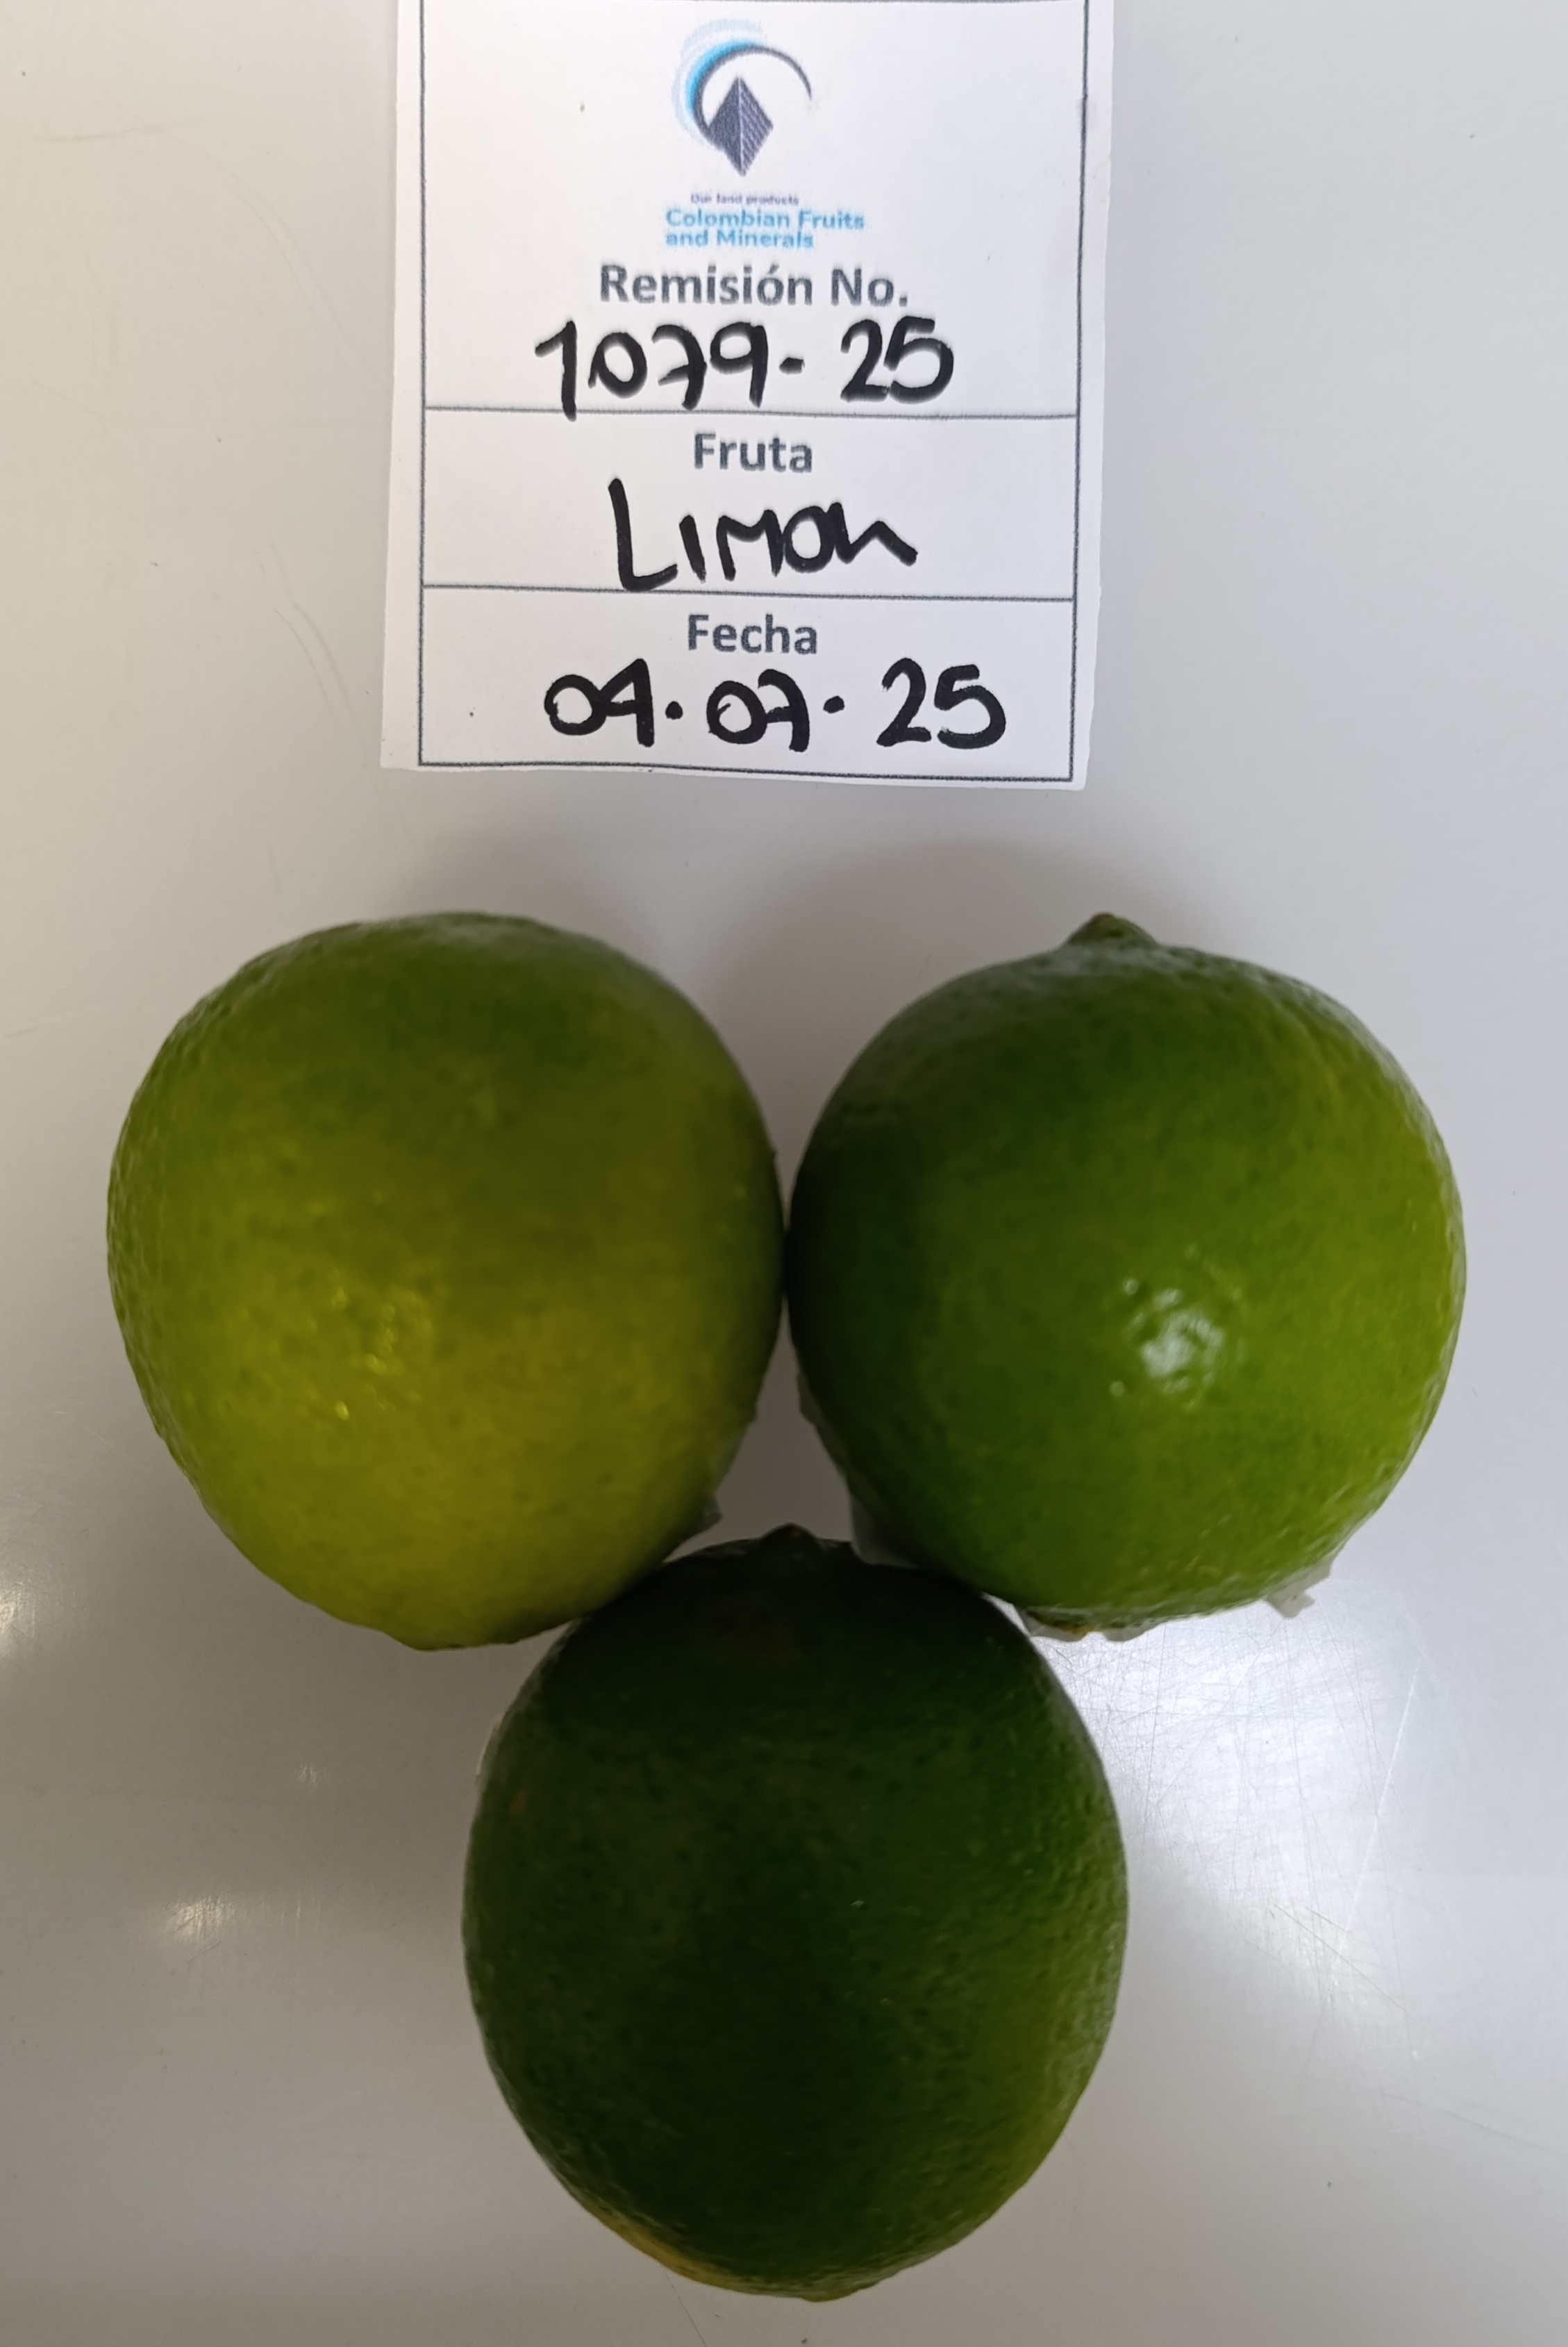 Our land products
Colombian Fruits
and Minerals
Remisión No.
1079-25
Fruta
Limon
Fecha
04.07.25